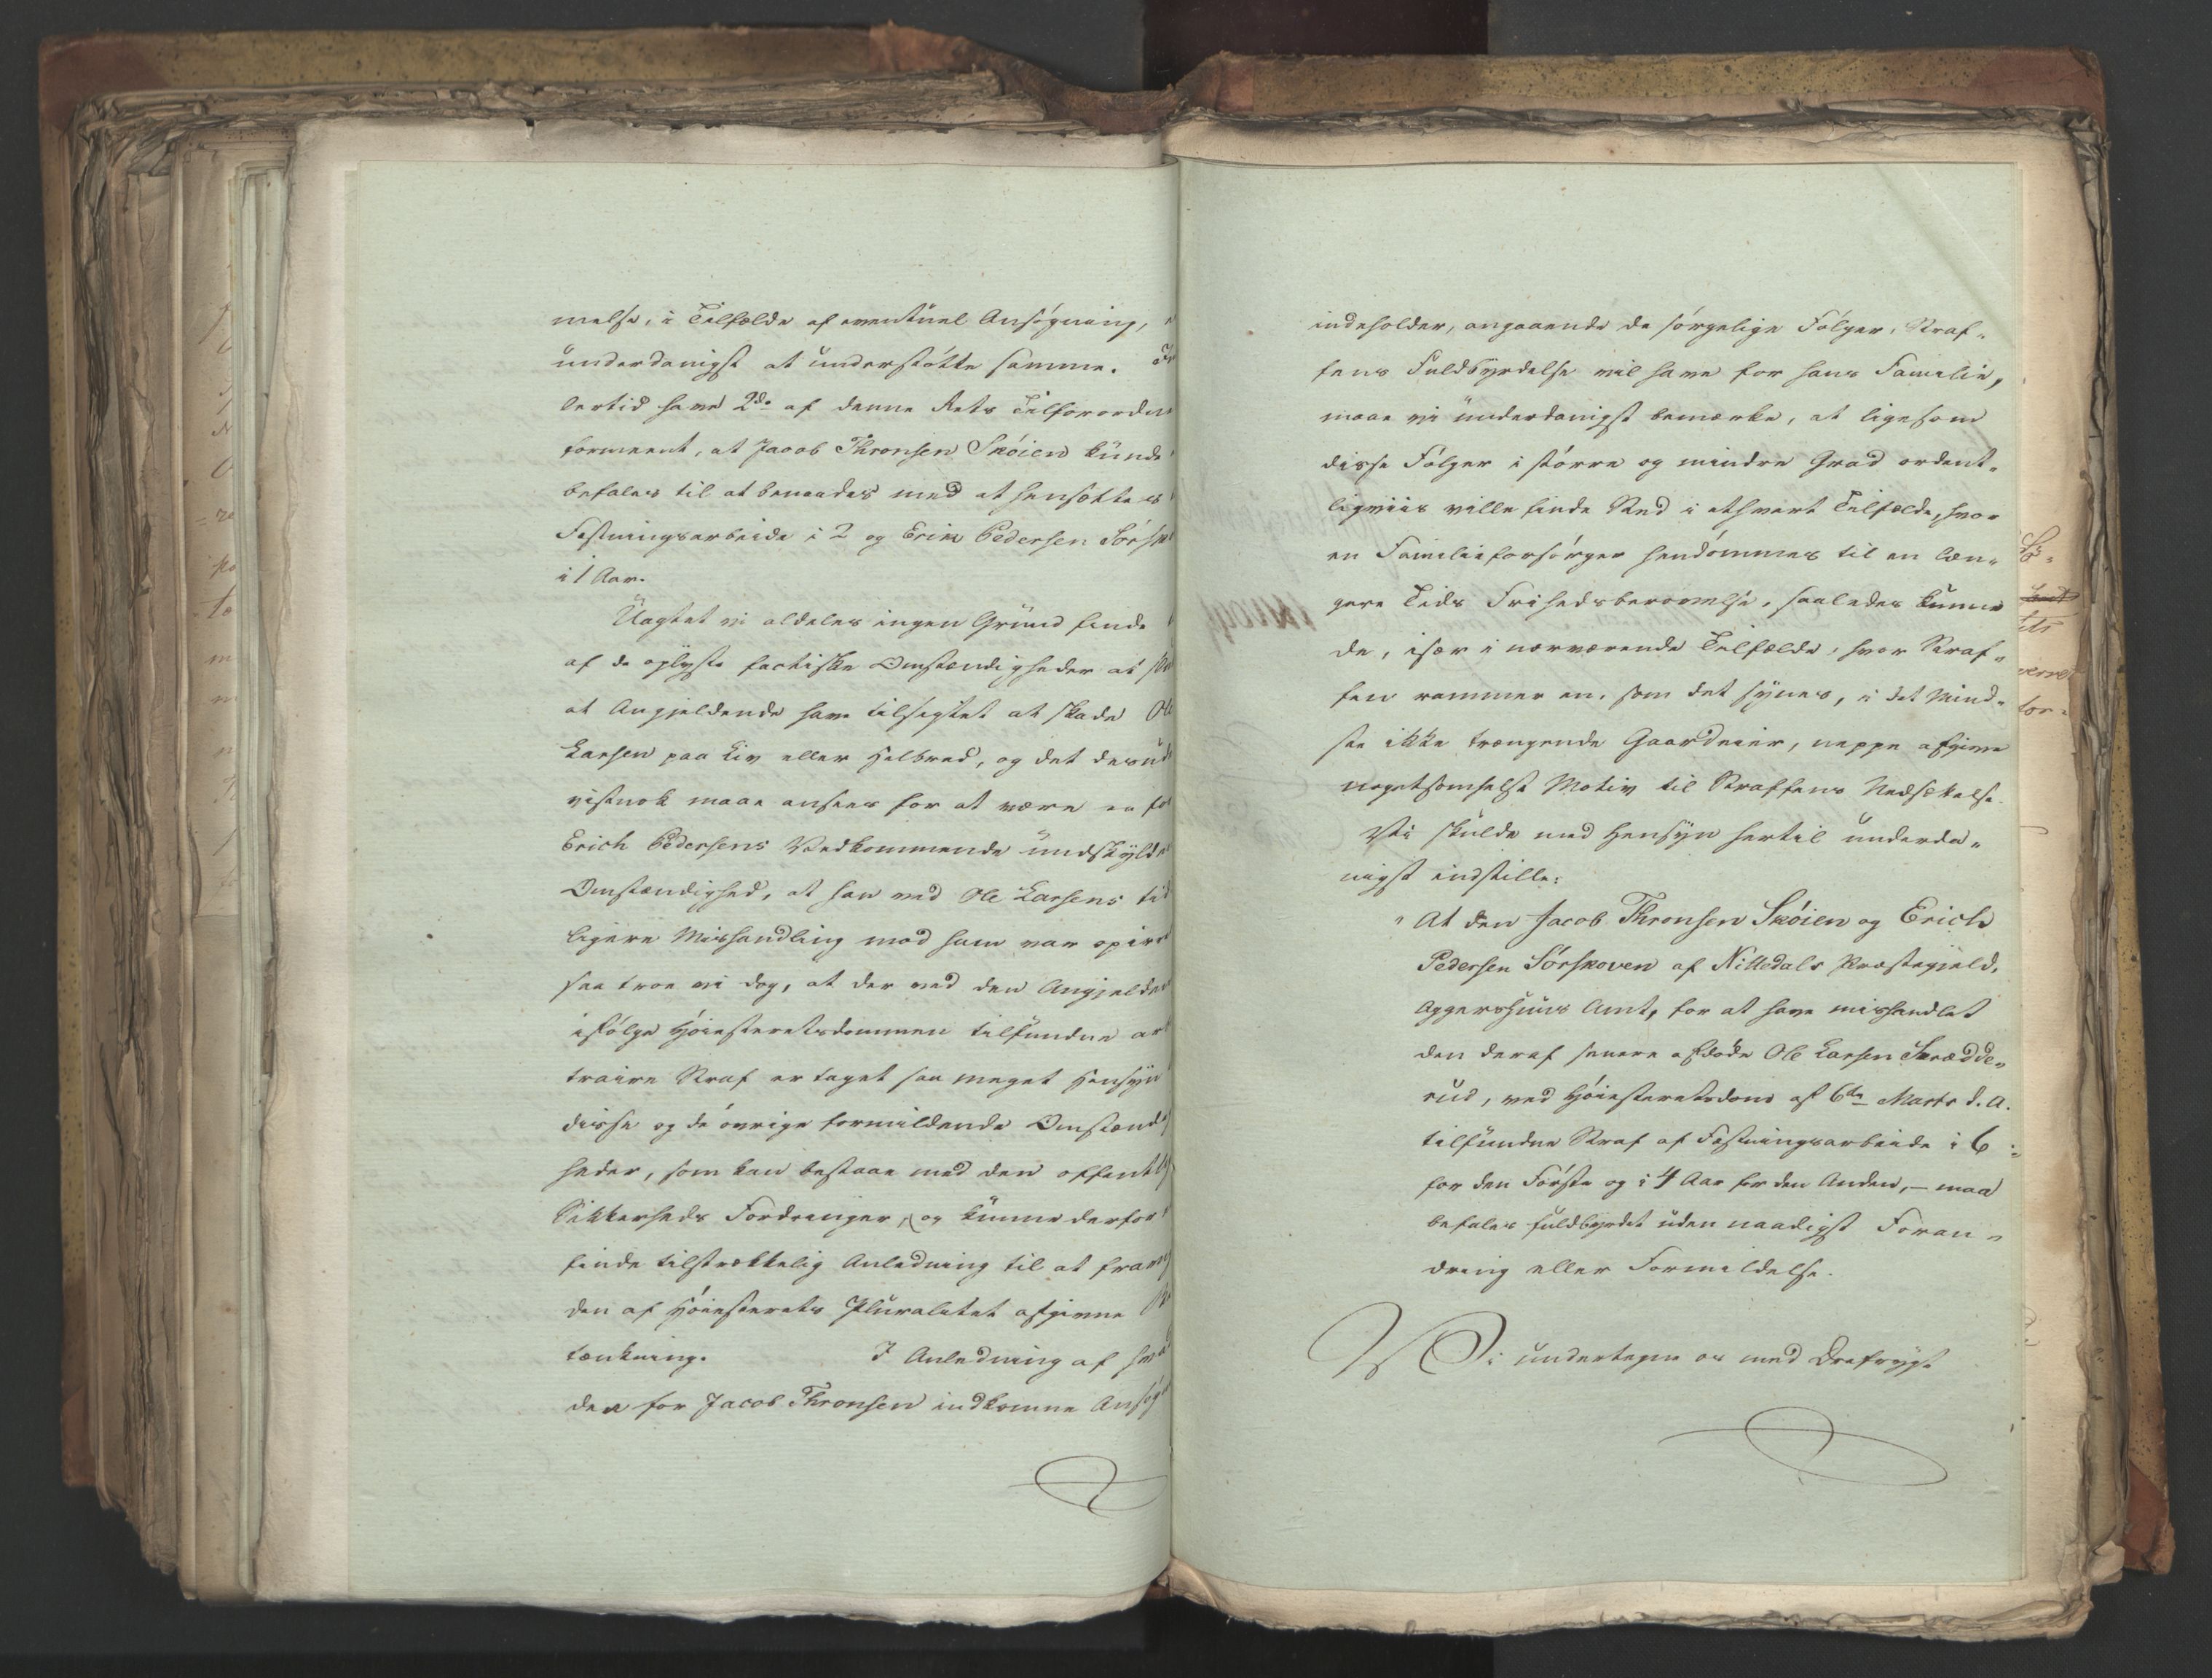 melse, i Tilfælde af eventuel Ansøgning,
underdanigst at understøtte samme.
lertid have 2de af denne Rets Tilforordn
formeent, at Jacob Thronsen Skøien kunde
befales til at benaades med at hensættes
Fæstningsarbeide i 2 og Erik Pedersen Sørsk
i 1 Aar.
Uagtet vi aldeles ingen Grund finde
af de oplyste factiske Omstændigheder at
at Angjeldende have tilsigtet at skade Ole
Larsen paa Liv eller Helbred, og det desud
vistnok maae ansees for at være en for
Erich Pedersens Vedkommende undskylde
Omstændighed, at han ved Ole Larsens tid
ligere Mishandling mod ham var opirr
saa troe vi dog, at der ved den Angjelden
ifølge Høiesteretsdommen tilfundne arbi
traire Straf er taget saa meget Hensyn
disse og de øvrige formildende Omstændig
heder, som kan bestaae med den offentlig
Sikkerheds Fordringer, og kunne derfor
finde tilstrækkelig Anledning til at frav
den af Høiesterets Pluralitet afgivne Be
tænkning. I Anledning af hvad
den for Jacob Thronsen indkomne Ansøg
indeholder, angaaende de sørgelige Følger, Straf-
fens Fuldbyrdelse vil have for hans Familie,
maae vi underdanigst bemærke, at ligesom
disse Følger i større og mindre Grad ordent-
ligviis ville finde Sted i ethvert Tilfælde, hvor
en Familieforsørger hendømmes til en læn-
gere Tids Frihedsberøvelse, saaledes kunne
de, især i nærværende Tilfælde, hvor Straf-
fen rammer en, som det synes, i det Mind-
ste ikke trængende Gaardeier, neppe afgive
nogetsomhelst Motiv til Straffens Nedsættelse.
Vi skulde med Hensyn hertil underda-
nigst indstille:
" At den Jacob Thronsen Skøien og Erich
Pedersen Sørskoven af Nittedals Præstegjeld,
Aggershuus Amt, for at have mishandlet
den deraf senere afdøde Ole Larsen Skrædde-
rud, ved Høiesteretsdom af 6te Marts d. A.
tilfundne Straf af Fæstningsarbeide i 6
for den Første og i 4 Aar for den Anden, — maa
befales fuldbyrdet uden naadigst Foran-
dring eller Formildelse.
Vi undertegne os med Drefrygt